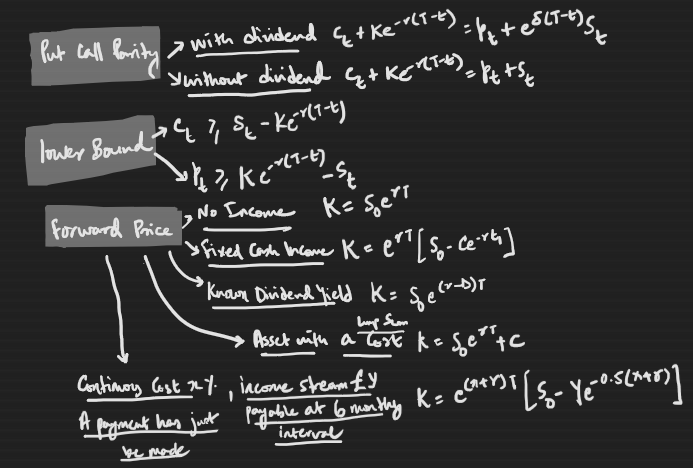 Put Call Parity → with dividend C_t + Ke^{-r(T-t)} = P_t + e^{δ(T-t)} S_t
↘ without dividend C_t + Ke^{-r(T-t)} = P_t + S_t
lower Bound → C_t ≥ S_t - Ke^{-r(T-t)}
↘ P_t ≥ Ke^{-r(T-t)} - S_t
Forward Price → No Income K = S_0 e^{rT}
↘ Fixed Cash Income K = e^{rT} [S_0 - Ce^{-rt_1}]
Known Dividend Yield K = S_0 e^{(r-D)T}
Asset with a lump sum Cost K = S_0 e^{rT} + C
Continous Cost x%, income stream £Y K = e^{(x+r)T} [S_0 - Ye^{-0.5(x+r)}]
A payment has just payable at 6 monthly
be made interval